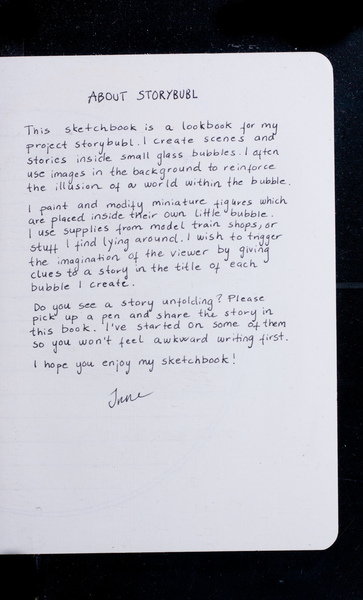 ABOUT STORYBUBL
This sketchbook is a lookbook for my
project storybubl. I create scenes and
stories inside small glass bubbles. I often
use images in the background to reinforce
the illusion of a world within the bubble.
I paint and modify miniature figures which
are placed inside their own little bubble.
I use supplies from model train shops, or
stuff I find lying around. I wish to trigger
the imagination of the viewer by giving
clues to a story in the title of each
bubble I create.
Do you see a story unfolding? Please
pick up a pen and share the story in
this book. I've started on some of them
so you won't feel awkward writing first.
I hope you enjoy my sketchbook!